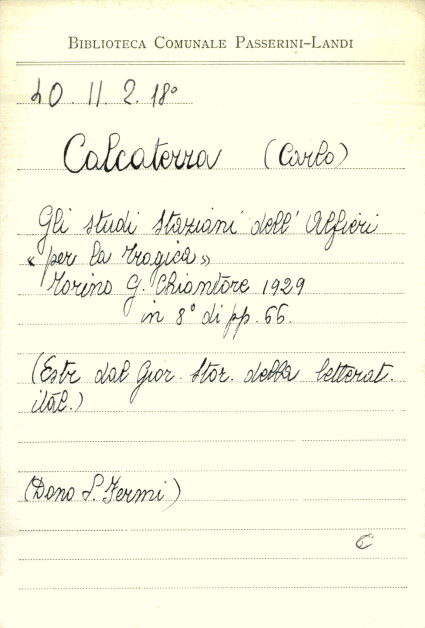 BIBLIOTECA COMUNALE PASSERINI-LANDI
LO. II. 2. 18°
Calcaterra (Carlo)
Gli studi Staziani dell' Alfieri
« per la tragica »
Torino G. Chiantore 1929
in 8° di pp. 66.
(Estr dal Gior. Stor. della letterat.
ital.)
(Dono S. Fermi)
C